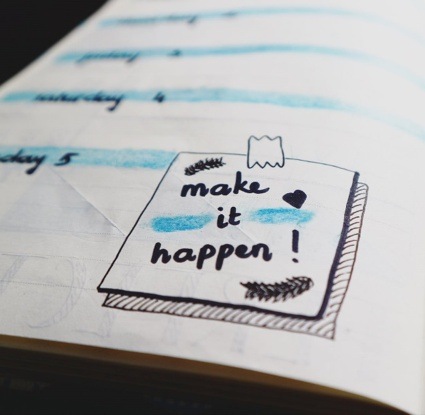 friday 3
saturday 4
day 5
make
it
happen !